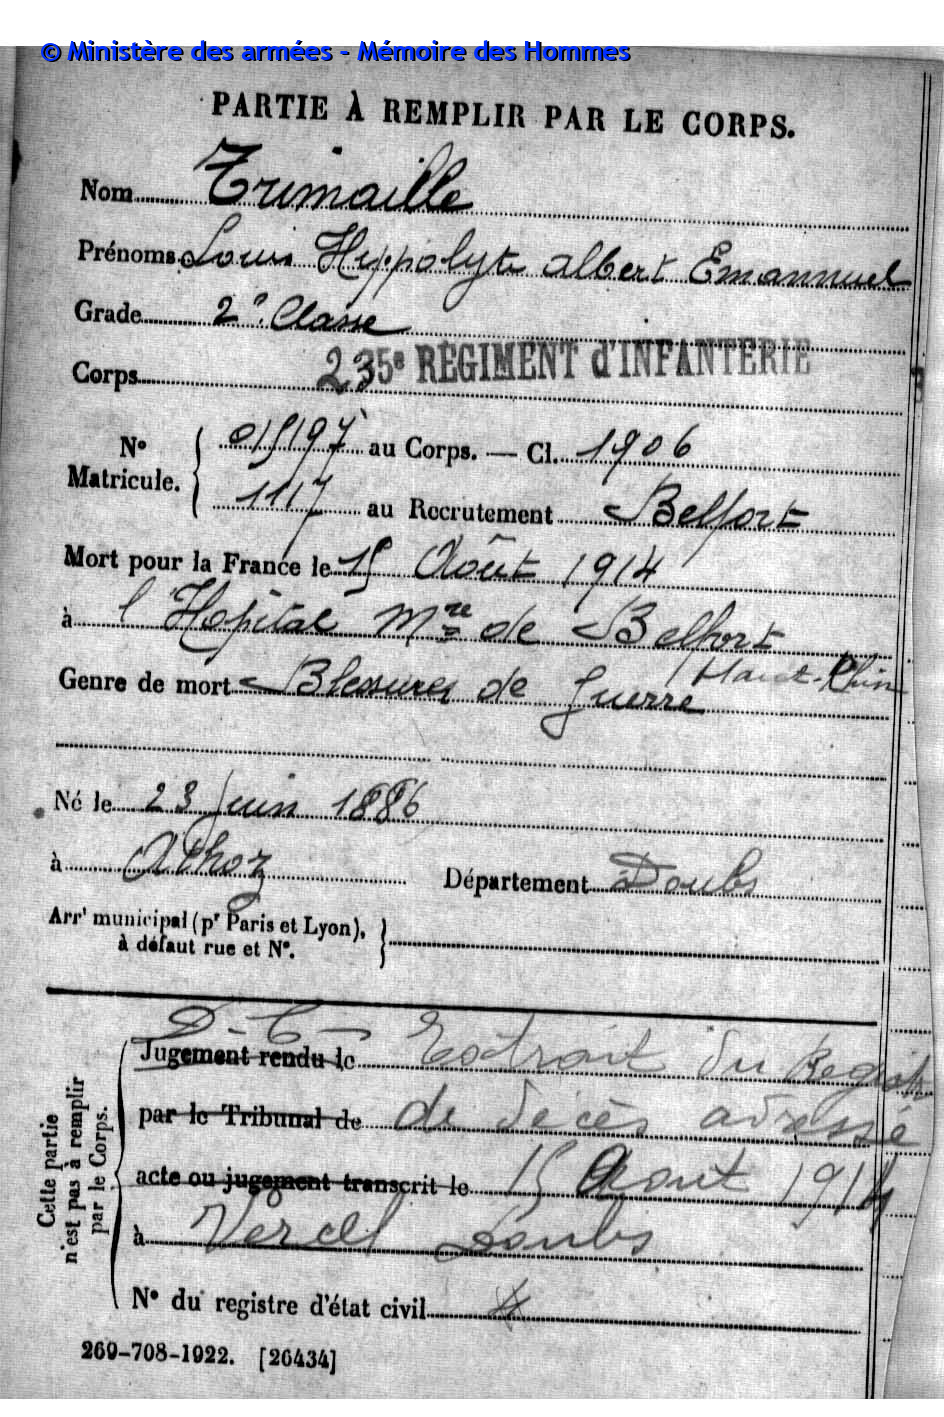 © Ministère des armées - Mémoire des Hommes
PARTIE À REMPLIR PAR LE CORPS.
Nom Trimaille
Prénoms Louis Hyppolyte Albert Emannuel
Grade 2e Classe
Corps 235e RÉGIMENT d'INFANTERIE
No Matricule. { 015197 au Corps. — Cl. 1906
1117 au Recrutement Belfort
Mort pour la France le 15 Août 1914
à l'Hopital Mre de Belfort
Haut-Rhin
Genre de mort Blessures de Guerre
Né le 23 Juin 1886
à Athoz Département Doubs
Arrt municipal (pr Paris et Lyon),
à défaut rue et No. }
D.C.
Jugement rendu le Extrait du Registre
par le Tribunal de de décès adressé
acte ou jugement transcrit le 15 Août 1914
à Vercel Doubs
No du registre d'état civil
Cette partie
n'est pas à remplir
par le Corps.
269-708-1922. [26434]